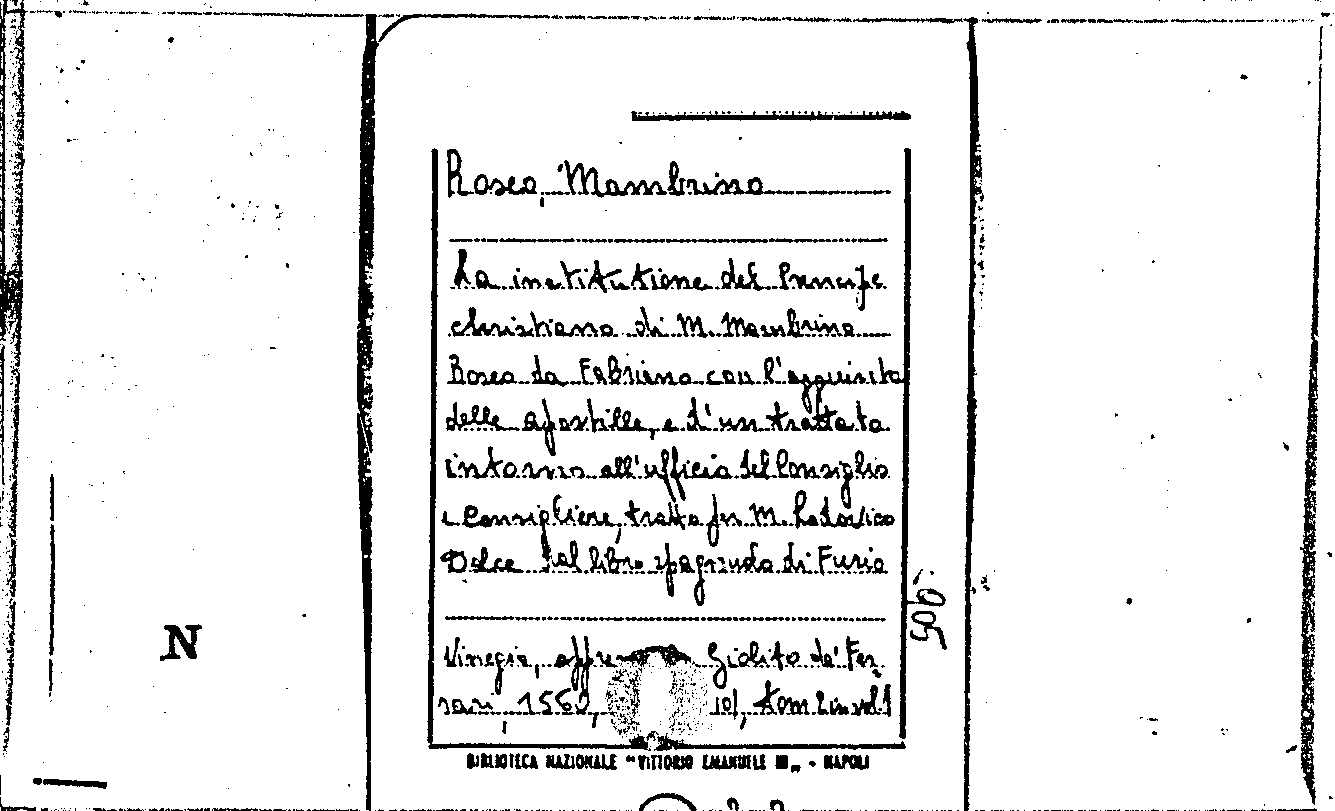 Roseo, Mambrino
La institutione del Principe
christiano di M. Mambrino
Roseo da Fabriano con l'aggiunta
delle apostille, e d'un trattato
intorno all'ufficio del Consiglio
e Consigliere, tratto per M. Lodovico
Dolce dal libro spagnuolo di Furio
Vinegia, Giolito de' Fer
rari, tom 2 in vol 1
N
BIBLIOTECA NAZIONALE "VITTORIO EMANUELE III„ - NAPOLI